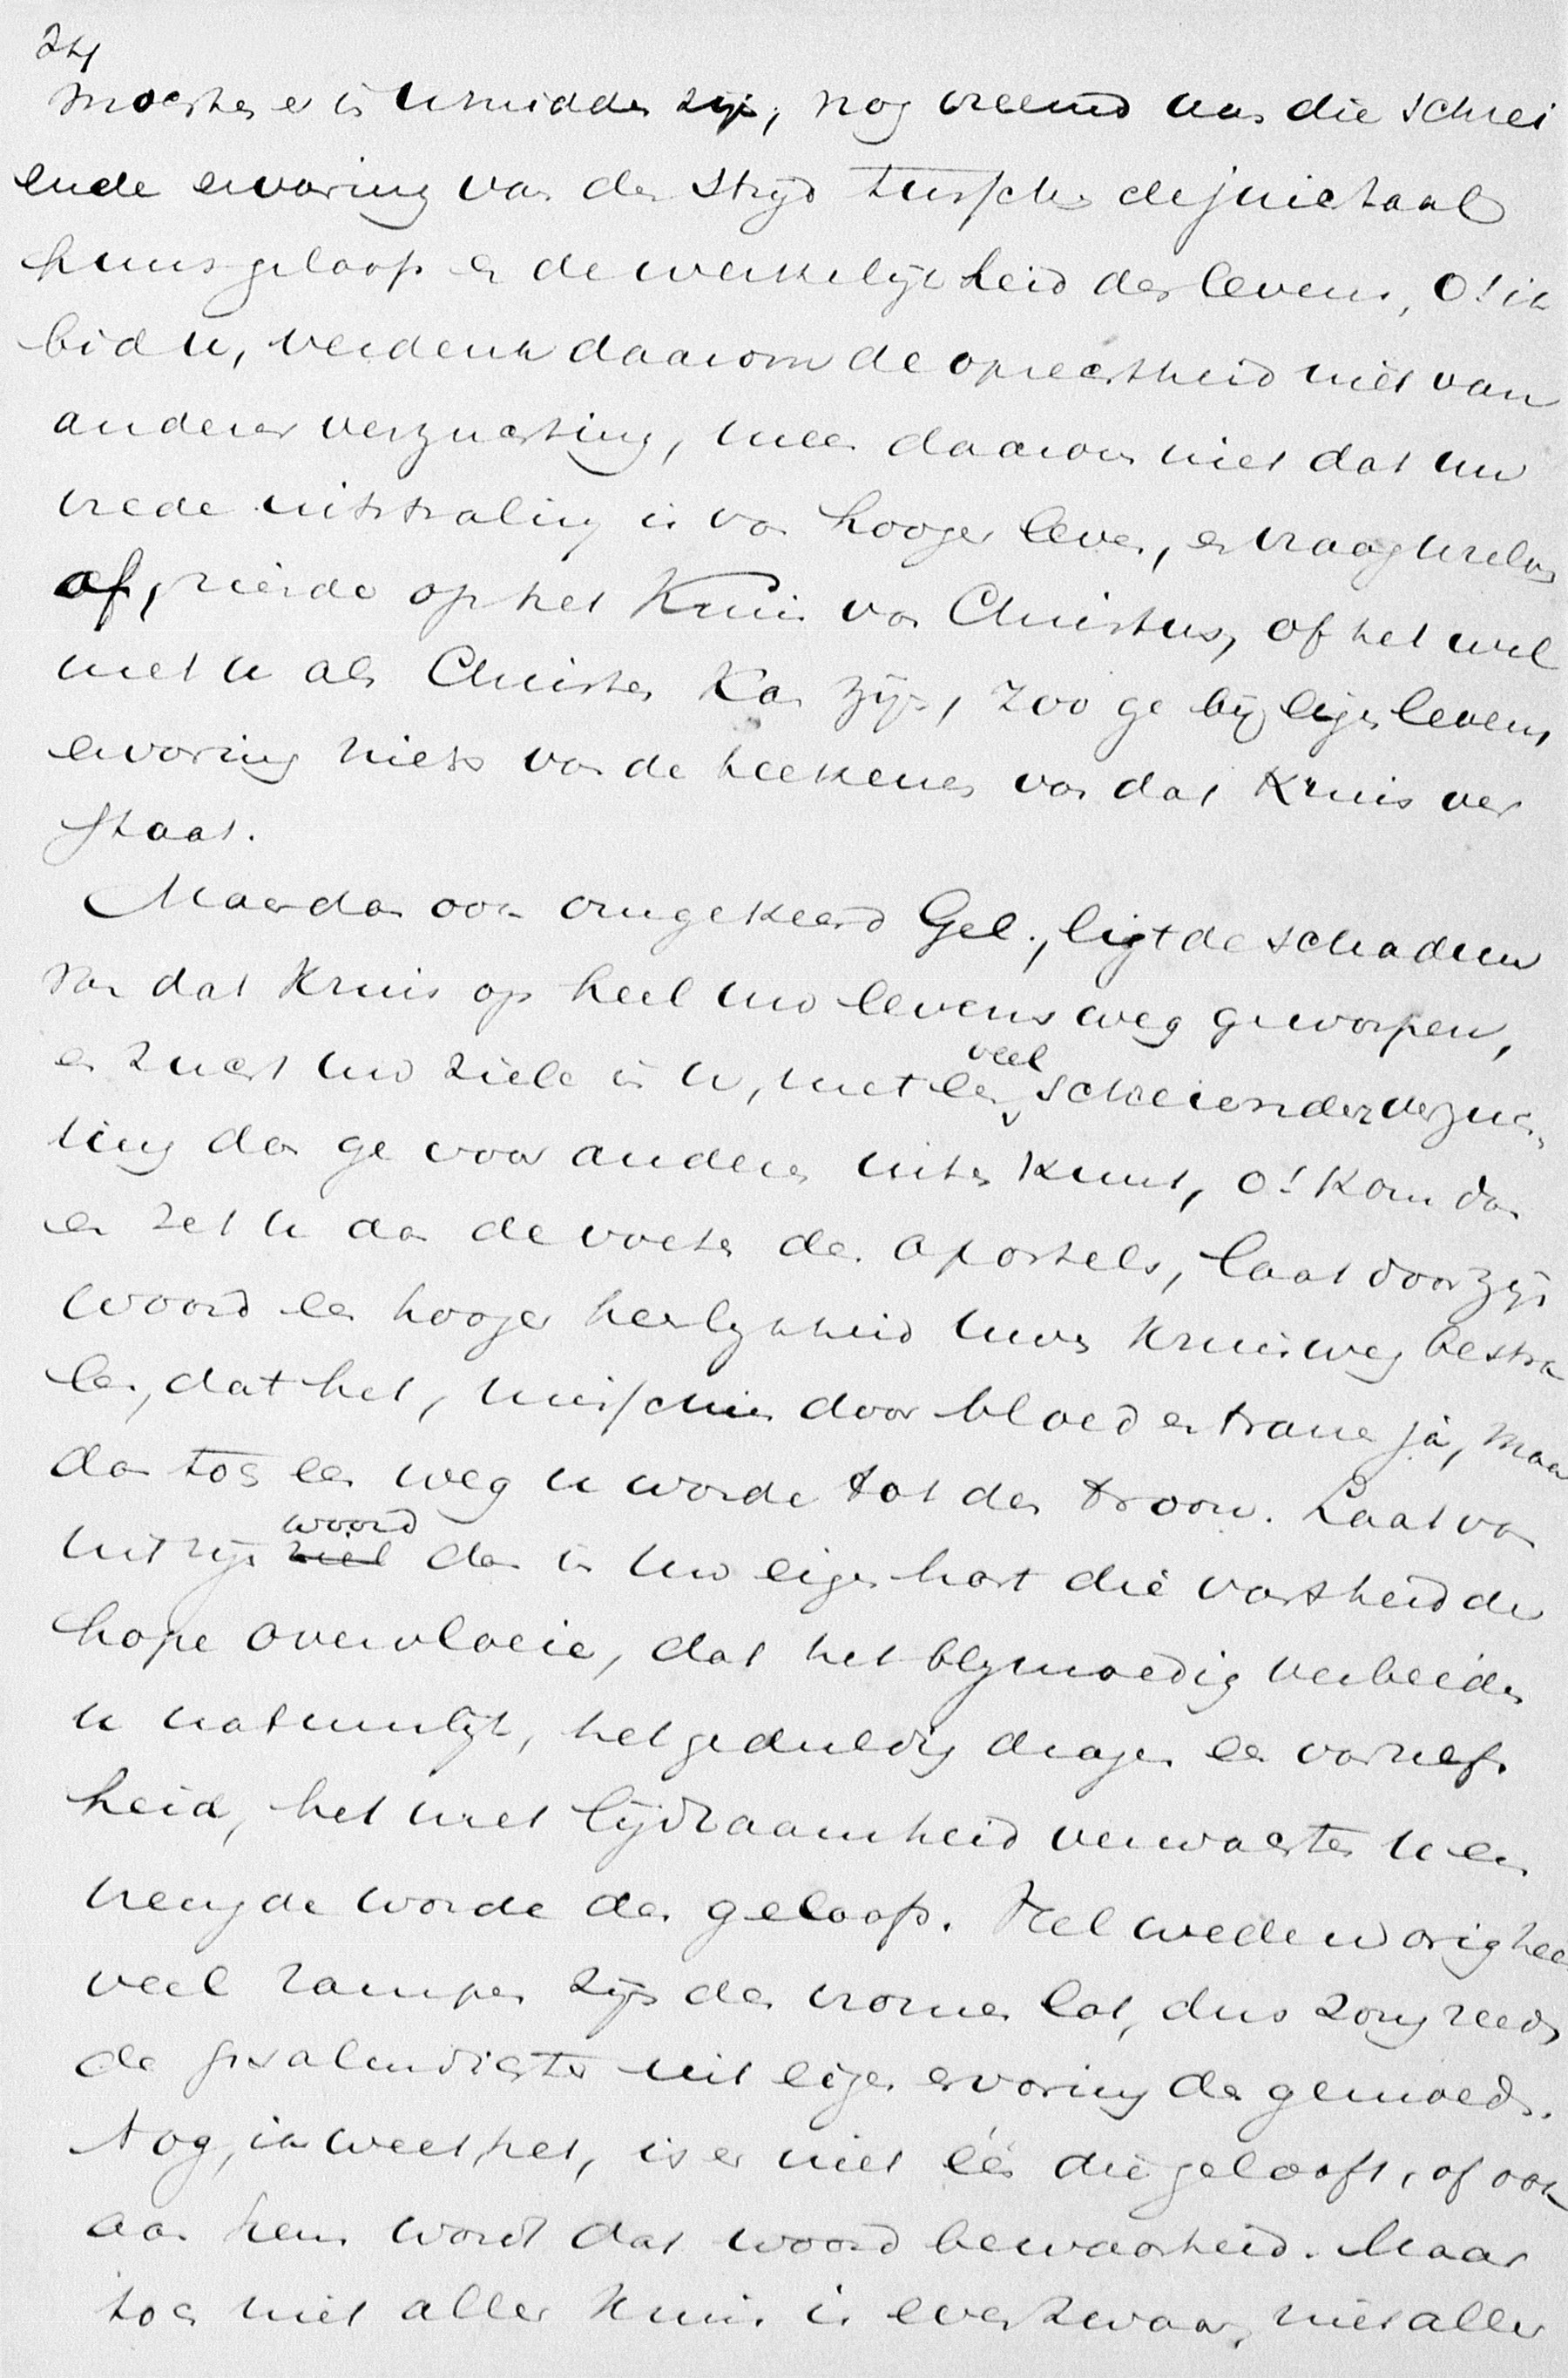 24
Mochten er in uw midden zijn, nog vreemd aan die schrei
ende ervaring van den strijd tusschen de juichtaal
huns geloofs en de werkelijkheid des levens, O! ik
bid u, verdenk daarom de oprechtheid niet van
anderer verzuchting, meen daarom niet dat uw
vrede uitstraling is van hooger leven, en vraag u
af, ziende op het Kruis van Christus, of het wel
met u als Christen Kan zijn, zoo ge bij eigen levens
ervaring niets van de teekenen van dat Kruis ver
staat.
Maar dan ook omgekeerd Gel., ligt de schaduw
van dat Kruis op heel uw levensweg geworpen,
en zucht uw ziele in u, met een veel schreiender verzuch
ting dan ge voor anderen uiten kunt, o! Kom dan
en zet u aan de voeten des apostels, laat door zijn
woord een hooger heerlijkheid uwen Kruisweg bestra
len, dat het, misschien door bloed en tranen ja, maar
dan toch een weg u worde tot den troon. Laat van
uit zijn woord dan in uw eigen hart die vastheid der
hope overvloeie, dat het blijmoedig verbeiden
u natuurlijk, het geduldig dragen een
heid, het met lijdzaamheid verwachten u een
vreugde worde des geloofs. Veel wederwaarigheen
veel rampen zijn des vromen lot, dus zong reeds
de psalmdichter uit eigen ervaring des gemoeds.
Nog, ik weet het, is er niet één die gelooft, of ook
aan hem wordt dat woord bewaarheid. Maar
toch niet aller kruis is even zwaar, niet aller